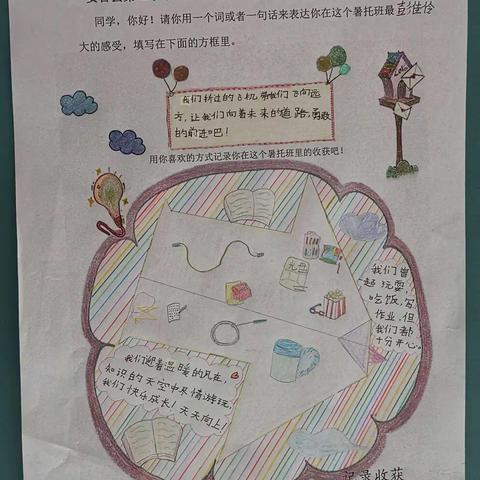 同学，你好！请你用一个词或者一句话来表达你在这个暑托班最
大的感受，填写在下面的方框里。
我们折过的飞机带我们飞向远
方，让我们向着未来的道路，勇敢
的前进吧！
用你喜欢的方式记录你在这个暑托班里的收获吧！
我们曾
一起玩耍，
吃饭，写
作业，但
我们都
十分开心。
我们迎着温暖的风在，
知识的天空中尽情游玩，
我们快乐成长！天天向上！
记录收获